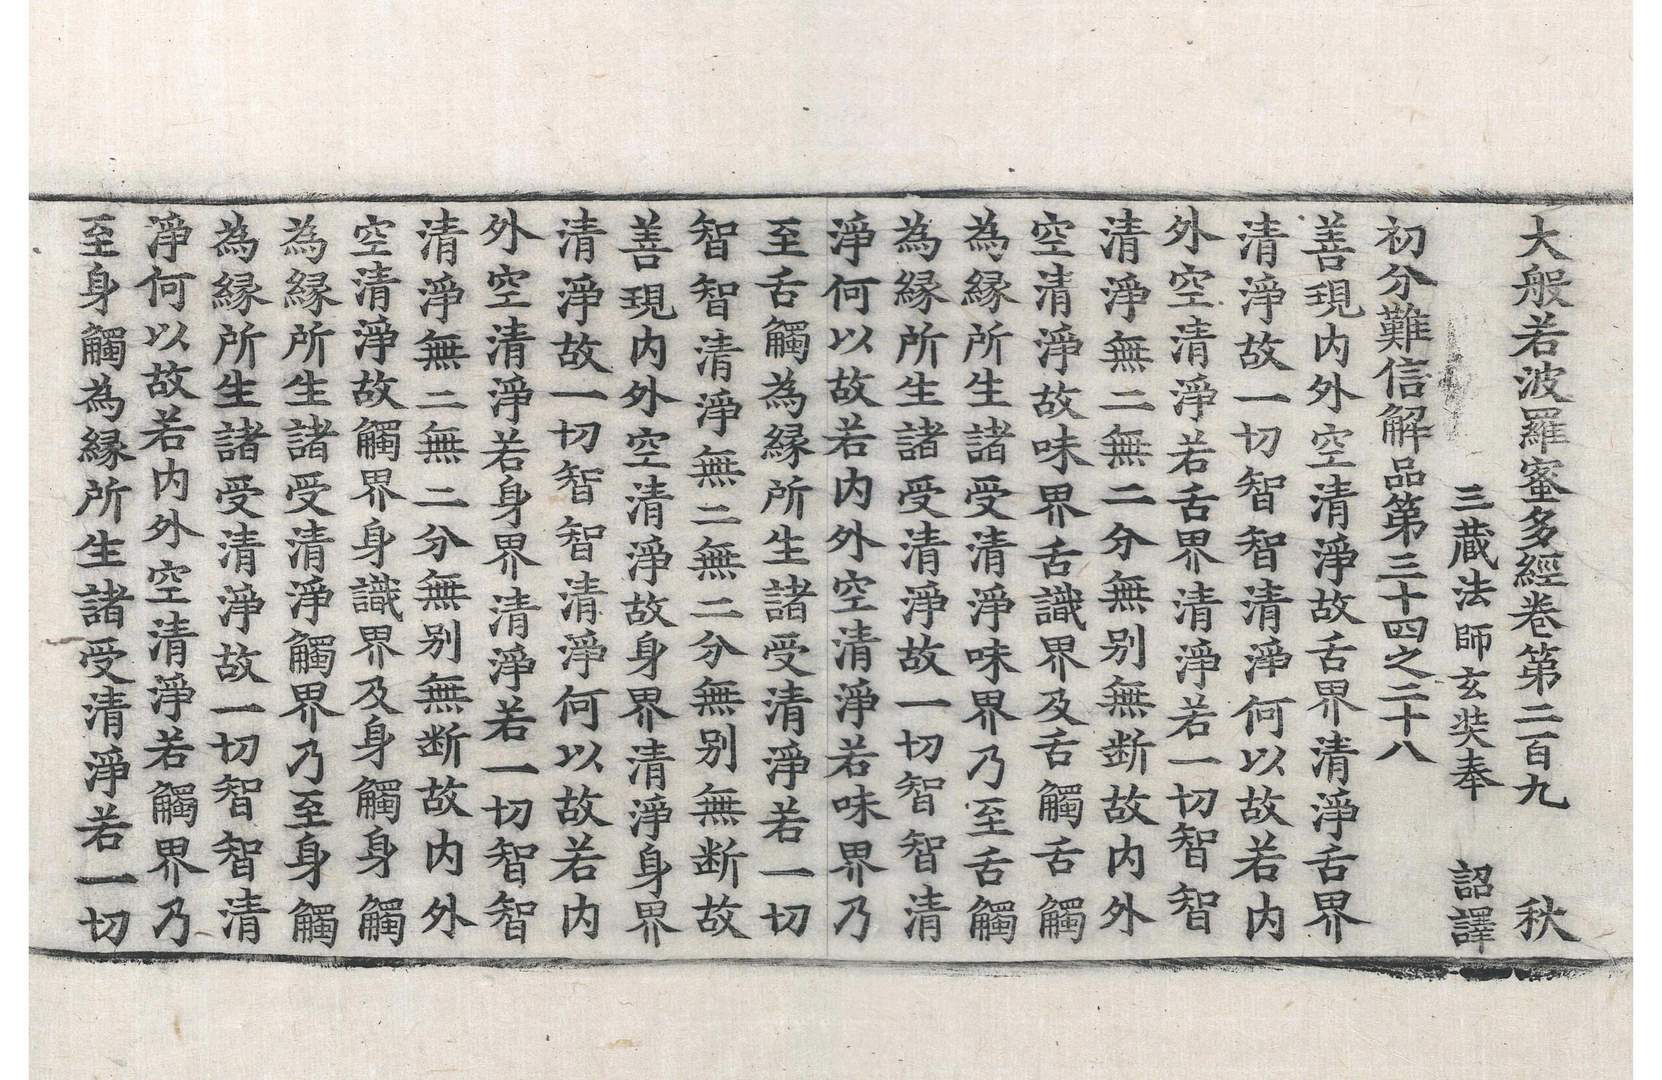 大般若波羅蜜多經卷第二百九　秋
三藏法師玄奘奉　詔譯
初分難信解品第三十四之二十八
善現内外空清淨故舌界清淨舌界
清淨故一切智智清淨何以故若内
外空清淨若舌界清淨若一切智智
清淨無二無二分無别無断故内外
空清淨故味界舌識界及舌觸舌觸
為縁所生諸受清淨味界乃至舌觸
為縁所生諸受清淨故一切智智清
淨何以故若内外空清淨若味界乃
至舌觸為縁所生諸受清淨若一切
智智清淨無二無二分無别無断故
善現内外空清淨故身界清淨身界
清淨故一切智智清淨何以故若内
外空清淨若身界清淨若一切智智
清淨無二無二分無别無断故内外
空清淨故觸界身識界及身觸身觸
為縁所生諸受清淨觸界乃至身觸
為縁所生諸受清淨故一切智智清
淨何以故若内外空清淨若觸界乃
至身觸為縁所生諸受清淨若一切